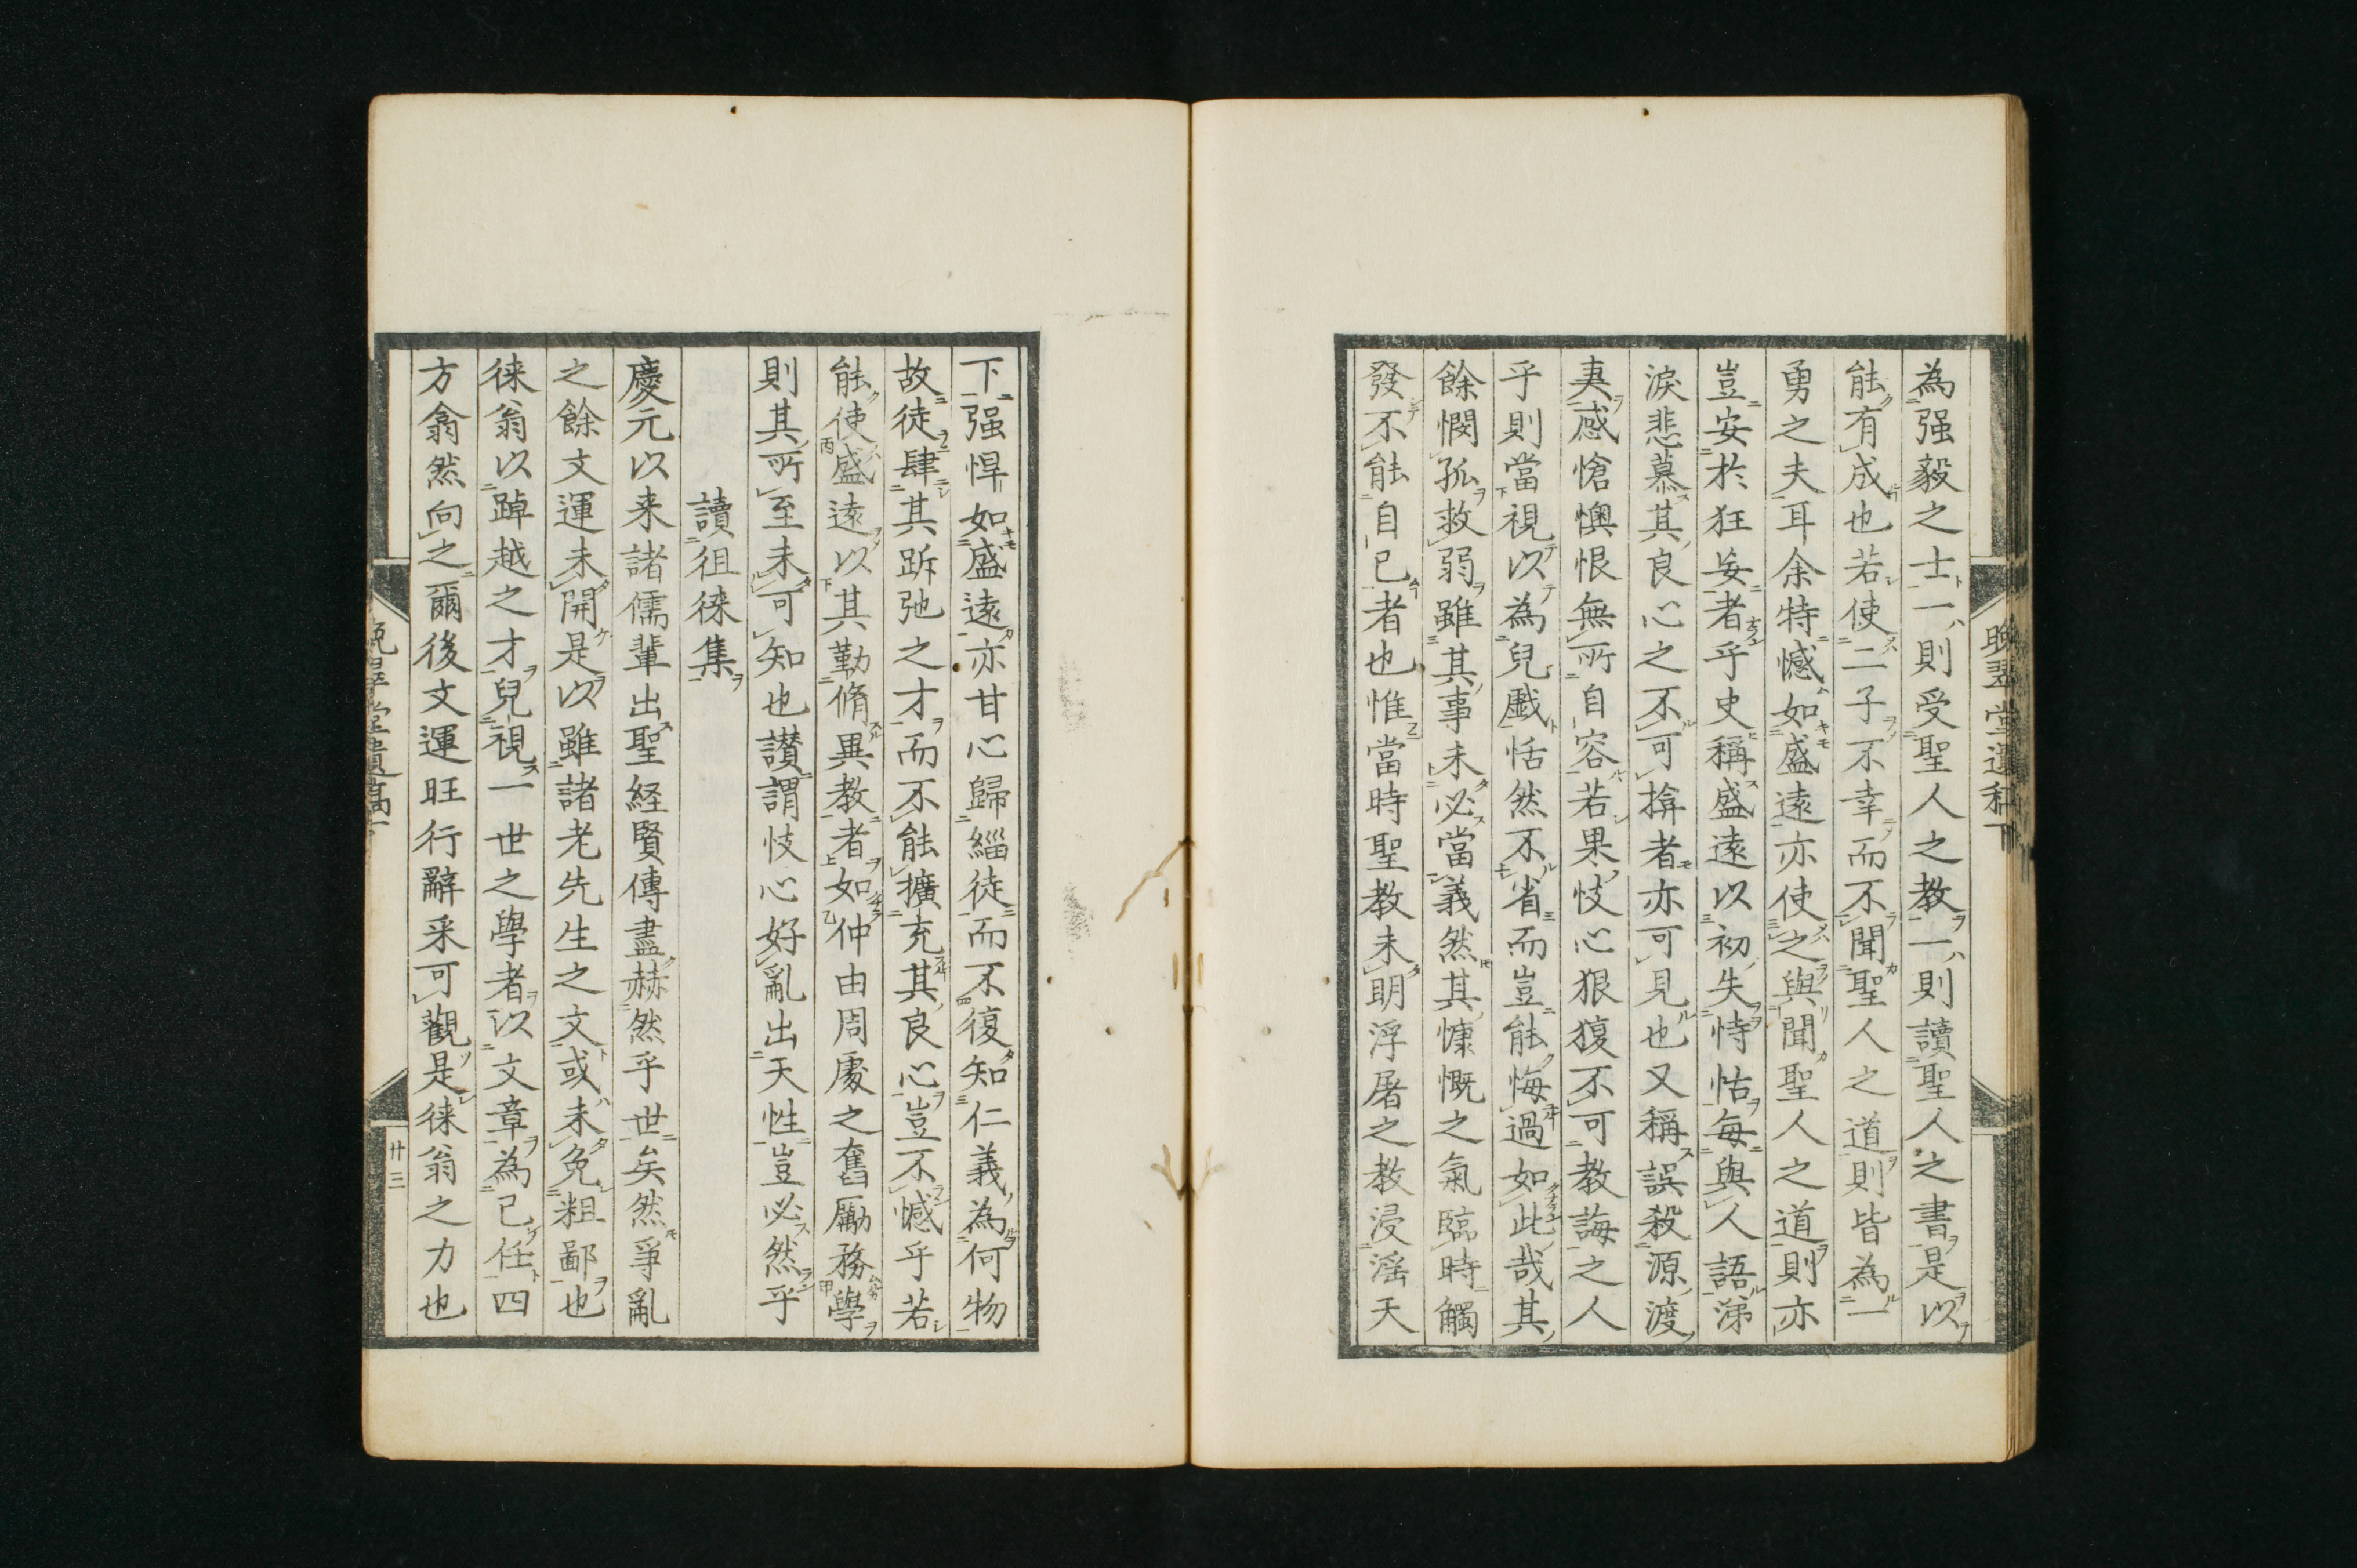 為强毅之士一則受聖人之教一則讀聖人之書是以
能有成也若使二子不幸而不聞聖人之道則皆為一
勇之夫耳余特憾如盛遠亦使之與聞聖人之道則亦
豈安於狂妄者乎史稱盛遠以初失恃怙每與人語涕
淚悲慕其良心之不可揜者亦可見也又稱誤殺源渡
妻感愴懊恨無所自容若果忮心狠愎不可教誨之人
乎則當視以為兒戲恬然不省而豈能悔過如此哉其
餘憫孤救弱雖其事未必當義然其慷慨之氣臨時觸
發不能自已者也惟當時聖教未明浮屠之教浸滛天
晚翠堂遺稿下
下强悍如盛遠亦甘心歸緇徒而不復知仁義為何物
故徒肆其跅弛之才而不能擴充其良心豈不憾乎若
能使盛遠以其勤脩異教者如仲由周處之舊勵務學
則其所至未可知也讃謂忮心好亂出天性豈必然乎
讀徂徠集
慶元以来諸儒輩出聖経賢傳盡赫然乎世矣然爭亂
之餘文運未開是以雖諸老先生之文或未免粗鄙也
徠翁以踔越之才兒視一世之學者以文章為己任四
方翕然向之爾後文運旺行辭采可觀是徠翁之力也
廿三